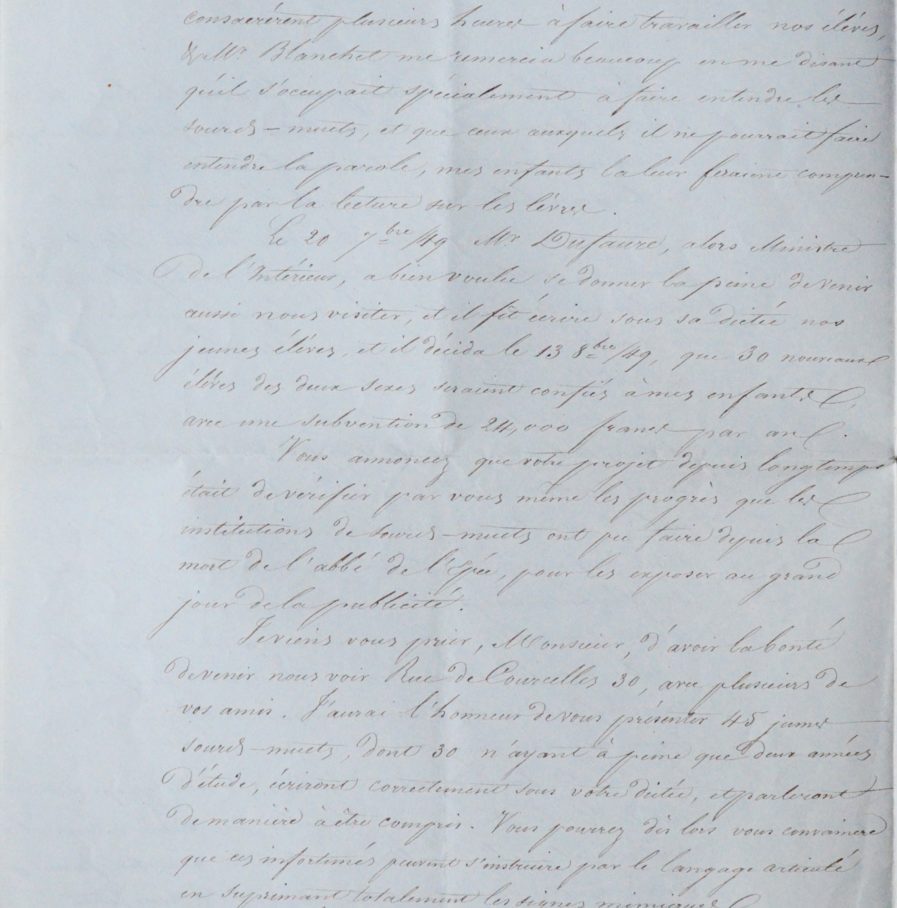 consacrèrent plusieurs heures à faire travailler nos élèves,
& Mr. Blanchet me remercia beaucoup en me disant
qu'il s'occupait spécialement à faire entendre les
sourds-muets, et que ceux auxquels il ne pourrait faire
entendre la parole, mes enfants la leur feraient compren-
dre par la lecture sur les lèvres.
Le 20 7bre/49 Mr Dufaure, alors Ministre
de l'Intérieur, a bien voulu se donner la peine de venir
aussi nous visiter, et il fit écrire sous sa dictée nos
jeunes élèves, et il décida le 13 8bre/49, que 30 nouveaux
élèves des deux sexes seraient confiés à mes enfants,
avec une subvention de 24,000 francs par an.
Vous annoncez que votre projet depuis longtemps
était de vérifier par vous même les progrès que les
institutions de sourds-muets ont pu faire depuis la
mort de l'abbé de l'Épée, pour les exposer au grand
jour de la publicité.
Je viens vous prier, Monsieur, d'avoir la bonté
de venir nous voir Rue de Courcelles 30, avec plusieurs de
vos amis. J'aurai l'honneur de vous présenter 45 jeunes
sourds-muets, dont 30 n'ayant à peine que deux années
d'étude, écriront correctement sous votre dictée, et parleront
de manière à être compris. Vous pourrez dès lors vous convaincre
que ces infortunés peuvent s'instruire par le langage articulé
en suprimant totalement les signes mimiques